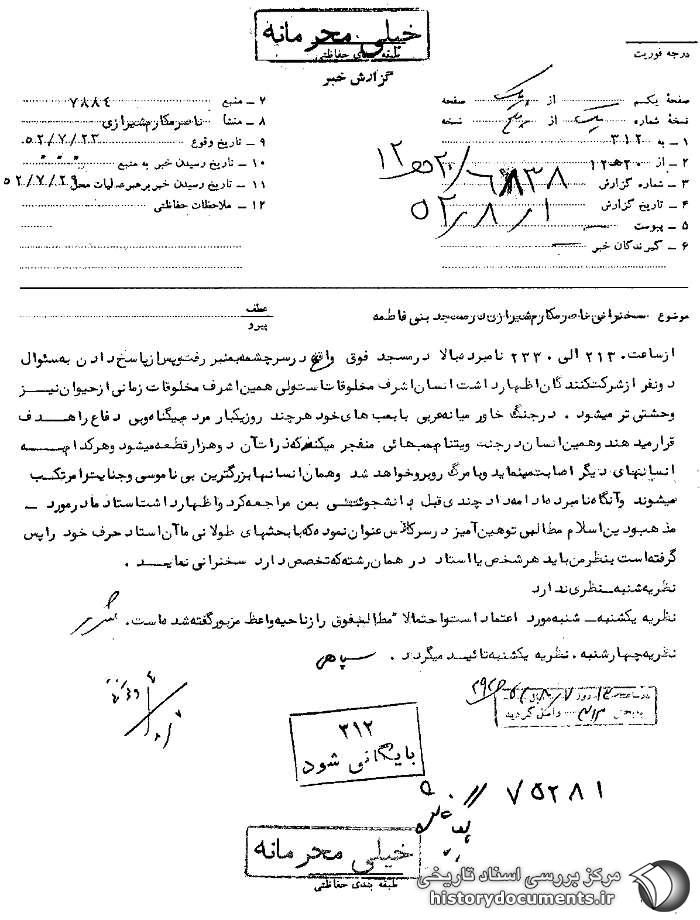 خیلی محرمانه
طبقه بندی حفاظتی
گزارش خبر
درجه فوریت
صفحهٔ یکم از یک صفحه
نسخهٔ شماره یک از پنج نسخه
۱ – به ۳۱۲
۲ – از ۲۰ ه‍ ۱۲
۳ – شماره گزارش
۴ – تاریخ گزارش ۵۲/۸/۱
۵ – پیوست
۶ – گیرندگان خبر
۷ – منبع ۷۸۸۴
۸ – منشأ ناصر مکارم شیرازی
۹ – تاریخ وقوع ۵۲/۷/۲۳
۱۰ – تاریخ رسیدن خبر به منبع
۱۱ – تاریخ رسیدن خبر برهبر عملیات محل ۵۲/۷/۲۹
۱۲ – ملاحظات حفاظتی
موضوع سخنرانی ناصر مکارم شیرازی در مسجد بنی فاطمه
عطف
پیرو
از ساعت ۲۱۳۰ الی ۲۲۳۰ نامبرده بالا در مسجد فوق واقع در سرچشمه بمنبر رفت و پس از پاسخ دادن به سئوال
دو نفر از شرکت کنندگان اظهار داشت انسان اشرف مخلوقات است ولی همین اشرف مخلوقات زمانی از حیوان نیز
وحشتی تر میشود . در جنگ خاور میانه عربی با بمب های خود هر چند روز یکبار مردم بیگناه و بی دفاع را هدف
قرار میدهند و همین انسان در جنگ ویتنام بمبهائی منفجر میکنند که ذرات آن دو هزار قطعه میشود و هر کدام به
انسانهای دیگر اصابت مینماید و با مرگ روبرو خواهد شد و همان انسانها بزرگترین بی ناموسی و جنایت را مرتکب
میشوند و آنگاه نامبرده ادامه داد چندی قبل دانشجوئی بمن مراجعه کرد و اظهار داشت استاد ما در مورد –
مذهب و دین اسلام مطالبی توهین آمیز در سر کلاس عنوان نموده که با بحثهای طولانی ما آن استاد حرف خود را پس
گرفته است بنظر من باید هر شخص یا استاد در همان رشته که تخصص دارد سخنرانی نماید .
نظریه شنبه – نظری ندارد
نظریه یکشنبه – شنبه مورد اعتماد است و احتمالا مطالب فوق را از ناحیه واعظ مزبور گفته شده است .
نظریه چهارشنبه . نظریه یکشنبه تائید میگردد . سپاهی
۳۱۲
بایگانی شود
۷۵۲۸۱
خیلی محرمانه
طبقه بندی حفاظتی
مرکز بررسی اسناد تاریخی
historydocuments.ir